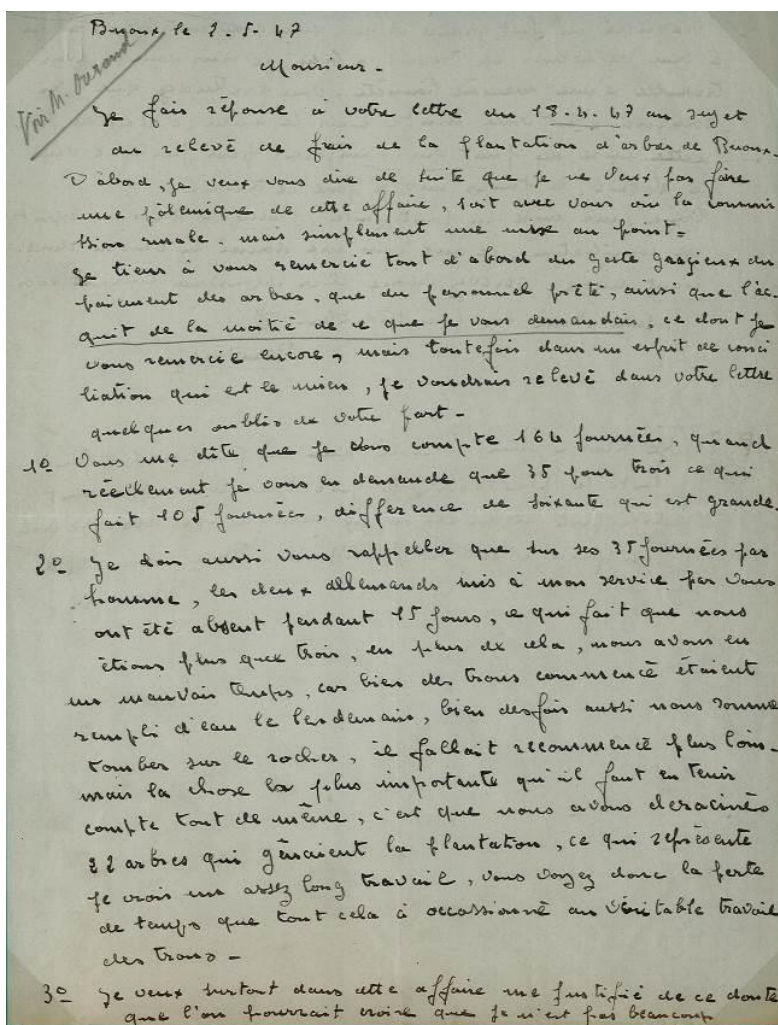 Buoux le 2.5.47
Voir M. Durand
Monsieur -
Je fais réponse à votre lettre du 18.4.47 au sujet
du relevé de frais de la plantation d'arbres de Buoux.
D'abord, je veux vous dire de suite que je ne veux pas faire
une polemique de cette affaire, soit avec vous où la commis
sion rurale. mais simplement une mise au point -
Je tiens à vous remercié tout d'abord du geste gracieux du
paiment des arbres, que du personnel prêté, ainsi que l'ac-
quit de la moitié de ce que je vous demandais, ce dont je
vous remercie encore, mais toutefois dans un esprit de conci
liation qui est le mien, je voudrais relevé dans votre lettre
quelques oublis de votre part -
1º Vous me dîte que je vous compte 164 journées, quand
réellement je vous en demande que 35 pour trois ce qui
fait 105 journées, différence de soixante qui est grande.
2º Je dois aussi vous rappeller que sur ses 35 journées par
homme, les deux allemands mis à mon service par vous
ont été absent pendant 15 jours, ce qui fait que nous
étions plus que trois, en plus de cela, nous avons eu
un mauvais temps, car bien des trous commencé étaient
rempli d'eau le lendemain, bien des fois aussi nous somme
tomber sur le rocher, il fallait recommencé plus loin -
mais la chose la plus importante qu'il faut en tenir
compte tout de même, c'est que nous avons deracinés
22 arbres qui gênaient la plantation, ce qui représente
je crois un assez long travail, vous voyez donc la perte
de temps que tout cela à occassionné au véritable travail
des trous -
3º Je veux surtout dans cette affaire me justifié de ce doute
que l'on pourrait croire que je n'est pas beaucoup